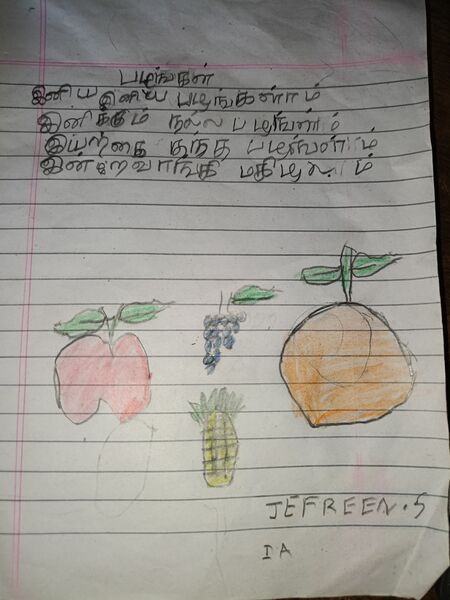 பழங்கள்
இனிய இனிய பழங்களாம்
இனிக்கும் நல்ல பழங்களாம்
இயற்கை தந்த பழங்களாம்
இன்றே வாங்கி மகிழலாம்
JEFREEN.S
I A